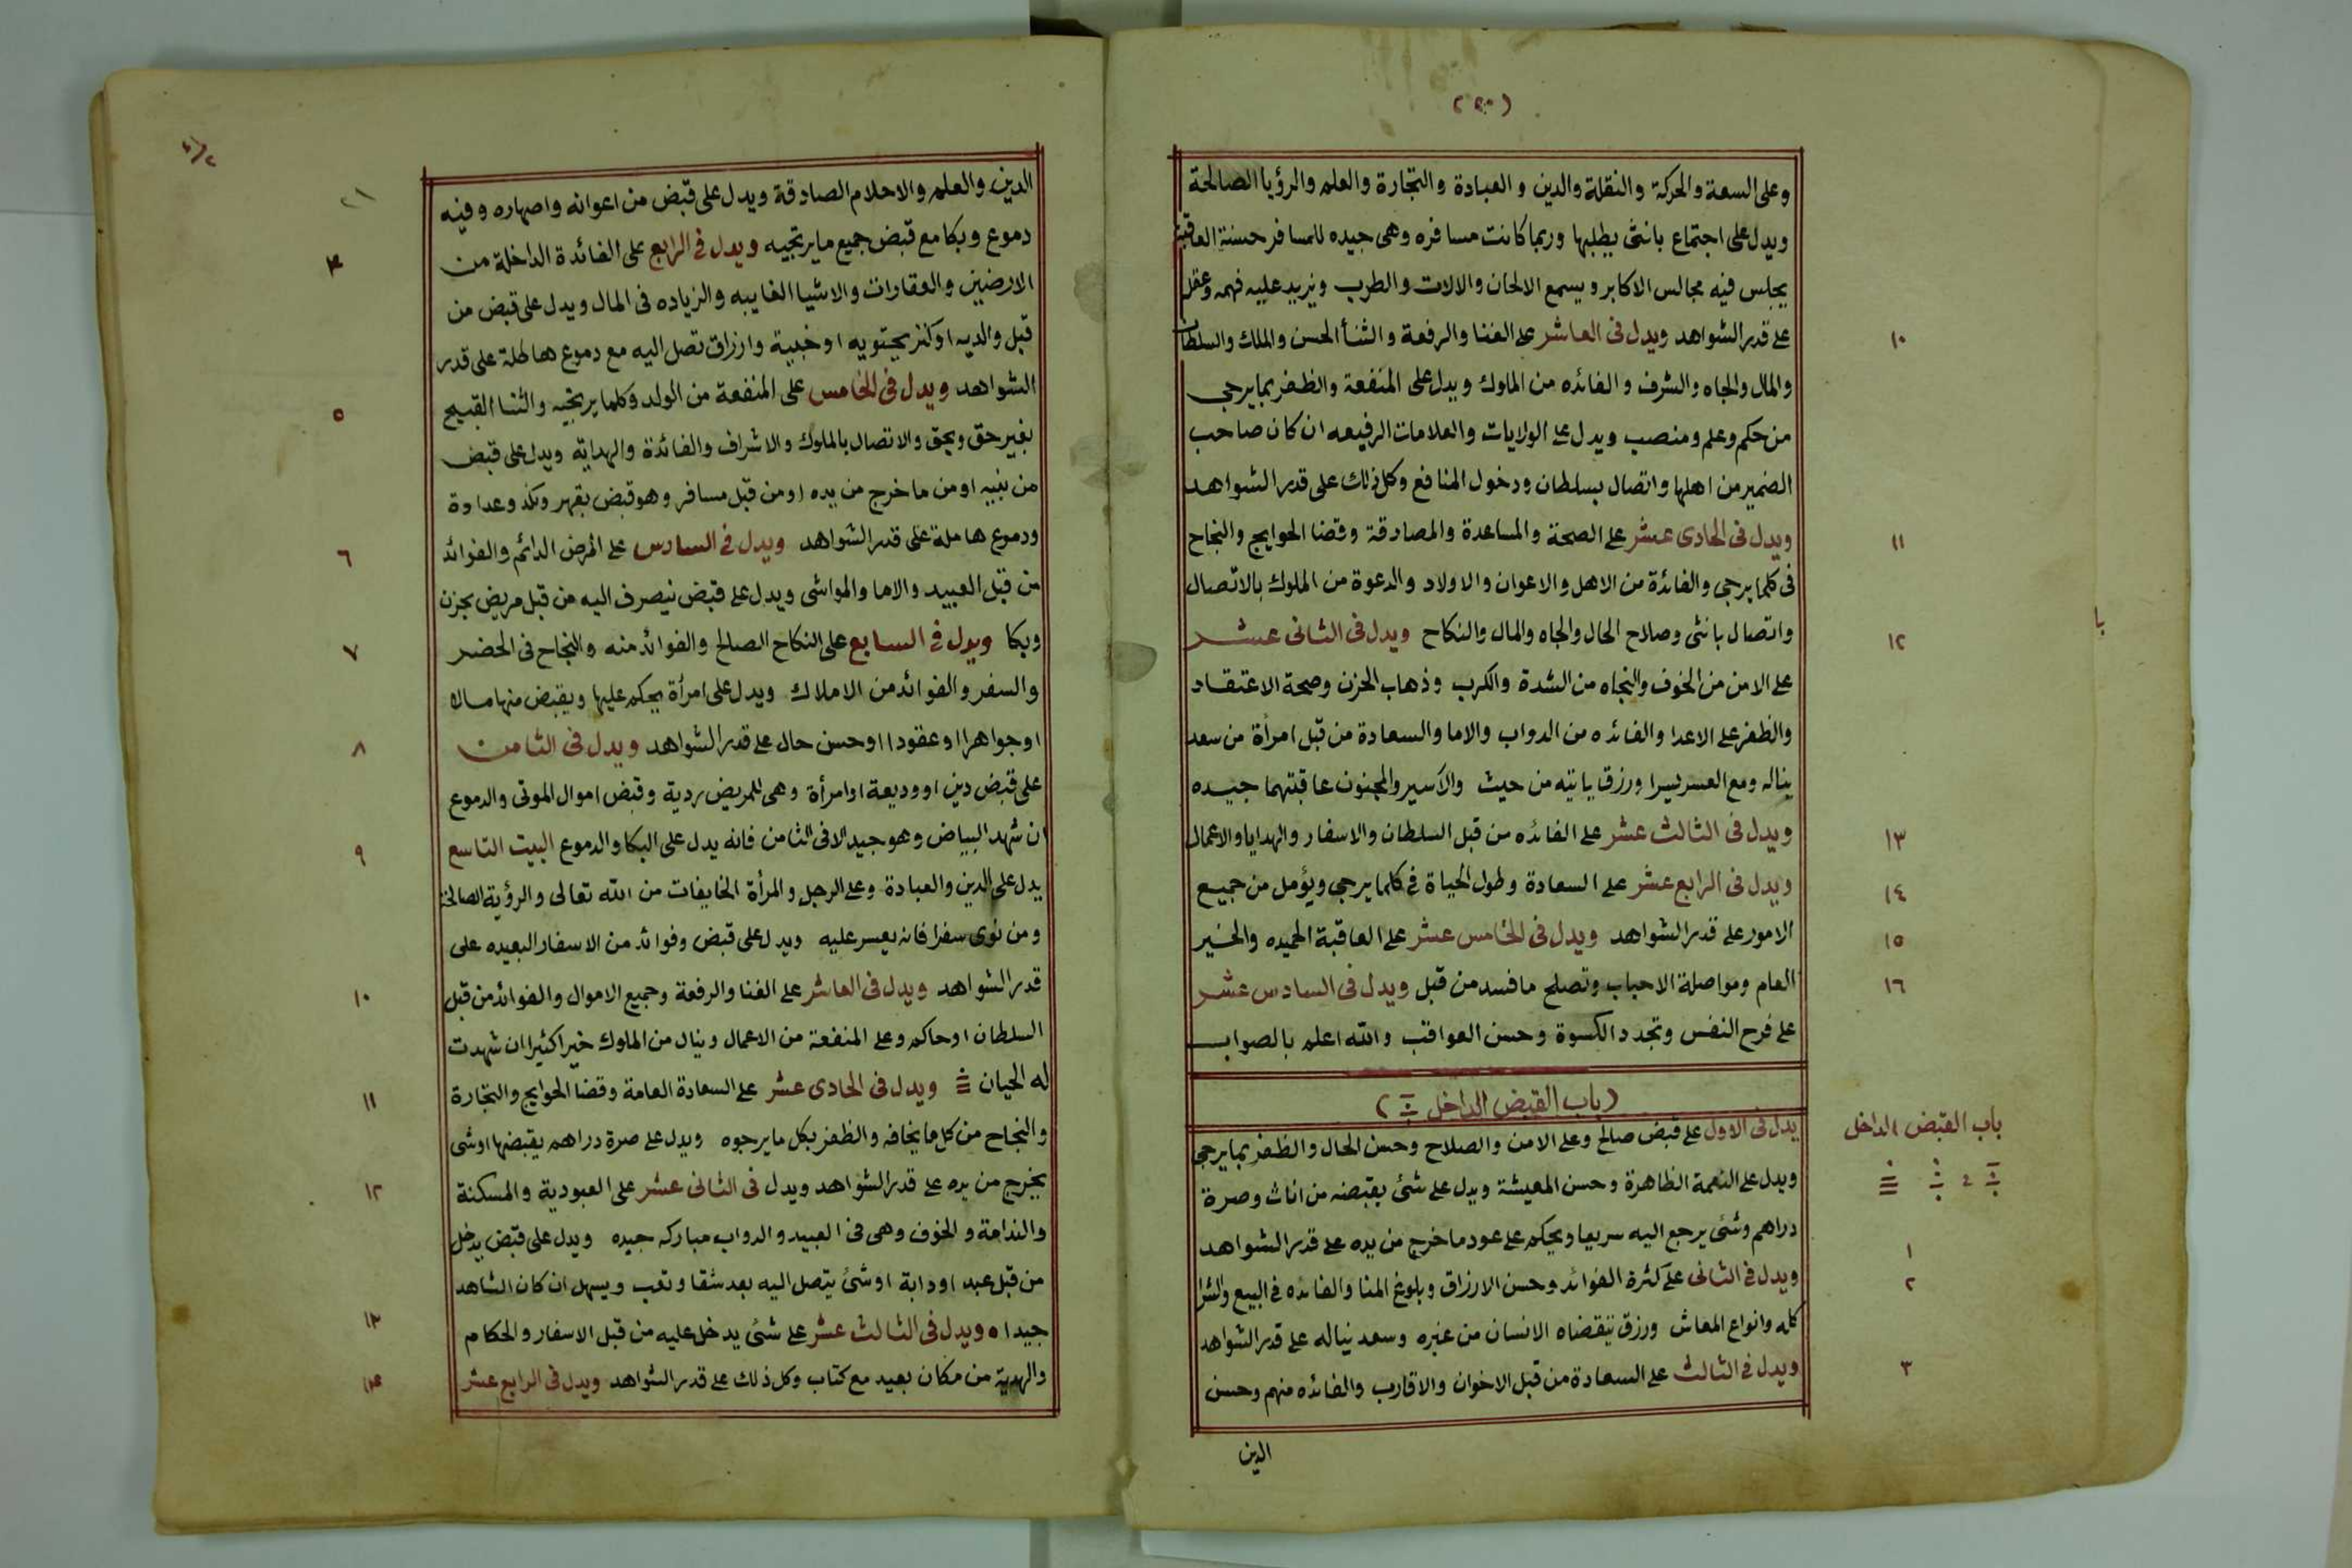 (٢٠)
وعلى السعة والحركة والنقلة والدين والعبادة والتجارة والعلم والرؤيا الصالحة
ويدل على اجتماع بانثى يطلبها وربما كانت مسافره وهى جيده للمسافر حسنة العاقبة
يجلس فيه مجالس الاكابر ويسمع الالحان والالات والطرب ويزيد عليه فهمه وعقله
على قدر الشواهد ويدل فى العاشر على الغنا والرفعة والثنأ الحسن والملك والسلطان
١٠
والمال والجاه والشرف والفائده من الملوك ويدل على المنفعة والظفر بما يرجى
من حكم وعلم ومنصب ويدل على الولايات والعلامات الرفيعه ان كان صاحب
الضمير من اهلها واتصال بسلطان ودخول المنافع وكل ذلك على قدر الشواهد
ويدل فى الحادى عشر على الصحة والمساعدة والمصادقة وقضا الحوايج والنجاح
١١
فى كلما يرجى والفائدة من الاهل والاعوان والاولاد والدعوة من الملوك بالاتصال
واتصال بانثى وصلاح الحال والجاه والمال والنكاح ويدل فى الثانى عشر
١٢
على الامن من الخوف والنجاه من الشدة والكرب وذهاب الحزن وصحة الاعتقاد
والظفر على الاعدا والفائده من الدواب والاما والسعادة من قبل امرأة من سعد
يناله ومع العسر يسرا ورزق ياتيه من حيث والاسير والمجنون عاقبتهما جيده
ويدل فى الثالث عشر على الفائده من قبل السلطان والاسفار والهدايا والاعمال
١٣
ويدل فى الرابع عشر على السعادة وطول الحياة فى كلما يرجى ويؤمل من جميع
١٤
الامور على قدر الشواهد ويدل فى الخامس عشر على العاقبة الحميده والخير
١٥
العام ومواصلة الاحباب وتصلح ما فسد من قبل ويدل فى السادس عشر
١٦
على فرح النفس وتجدد الكسوة وحسن العواقب والله اعلم بالصواب
(باب القبض الداخل)
باب القبض الداخل
يدل فى الاول على قبض صالح وعلى الامن والصلاح وحسن الحال والظفر بما يرجى
ويدل على النعمة الظاهرة وحسن المعيشة ويدل على شئ يقبضه من اناث وصرة
دراهم وشئ يرجع اليه سريعا ويحكم على عود ما خرج من يده على قدر الشواهد
١
ويدل فى الثانى على كثرة الفوائد وحسن الارزاق وبلوغ المنا والفائده فى البيع والشرا
٢
كله وانواع المعاش ورزق يتقضاه الانسان من غيره وسعد يناله على قدر الشواهد
ويدل فى الثالث على السعادة من قبل الاخوان والاقارب والفائده منهم وحسن
٣
الدين
٢١
الدين والعلم والاحلام الصادقة ويدل على قبض من اعوانه واصهاره وفيه
دموع وبكا مع قبض جميع ما يرتجيه ويدل فى الرابع على الفائدة الداخلة من
۴
الارضين والعقارات والاشيا الغايبه والزياده فى المال ويدل على قبض من
قبل والديه او كنز يحتويه او خبية وارزاق تصل اليه مع دموع هاطلة على قدر
الشواهد ويدل فى الخامس على المنفعة من الولد وكلما يرتجيه والثنا القبيح
٥
بغير حق وبحق والاتصال بالملوك والاشراف والفائدة والهداية ويدل على قبض
من بنيه او من ما خرج من يده او من قبل مسافر وهو قبض بقهر ونكد وعداوة
ودموع هاملة على قدر الشواهد ويدل فى السادس على المرض الدائم والفوائد
٦
من قبل العبيد والاما والمواشى ويدل على قبض ينصرف اليه من قبل مريض بحزن
وبكا ويدل فى السابع على النكاح الصالح والفوائد منه والنجاح فى الحضر
٧
والسفر والفوائد من الاملاك ويدل على امرأة يحكم عليها ويقبض منها مالا
او جواهرا او عقودا او حسن حال على قدر الشواهد ويدل فى الثامن
٨
على قبض دين او وديعة او امرأة وهى للمريض ردية وقبض اموال الموتى والدموع
ان شهد البياض وهو جيد الا فى الثامن فانه يدل على البكا والدموع البيت التاسع
٩
يدل على الدين والعبادة وعلى الرجل والمرأة الخايفات من الله تعالى والرؤية الصالحة
ومن نوى سفرا فانه يعسر عليه ويدل على قبض وفوائد من الاسفار البعيده على
قدر الشواهد ويدل فى العاشر على الغنا والرفعة وجميع الاموال والفوائد من قبل
١٠
السلطان او حاكم وعلى المنفعة من الاعمال وينال من الملوك خيرا كثيرا ان شهدت
له الحيان ويدل فى الحادى عشر على السعادة العامة وقضا الحوايج والتجارة
١١
والنجاح من كل ما يخافه والظفر بكل ما يرجوه ويدل على صرة دراهم يقبضها او شى
يخرج من يده على قدر الشواهد ويدل فى الثانى عشر على العبودية والمسكنة
١٢
والندامة والخوف وهى فى العبيد والدواب مباركه جيده ويدل على قبض يدخل
من قبل عبد او دابة او شئ يتصل اليه بعد شقا وتعب ويسهل ان كان الشاهد
جيدا ويدل فى الثالث عشر على شئ يدخل عليه من قبل الاسفار والحكام
١٣
والهدية من مكان بعيد مع كتاب وكل ذلك على قدر الشواهد ويدل فى الرابع عشر
١۴